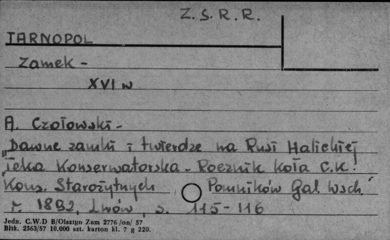 Z.S.R.R.
TARNOPOL
Zamek -
XVI w
A. Czołowski -
Dawne zamki i twierdze na Rusi Halickiej
„Teka Konserwatorska - Rocznik Koła C.K.
Kons. Starożytnych Pomników Gal Wsch.
r. 1892, Lwów, s. 115-116
Jedn. C.W.D B/Olsztyn Zam 2776 /on/ 57
Bltk. 2563/57 10.000 szt. karton kl. 7 g 220.